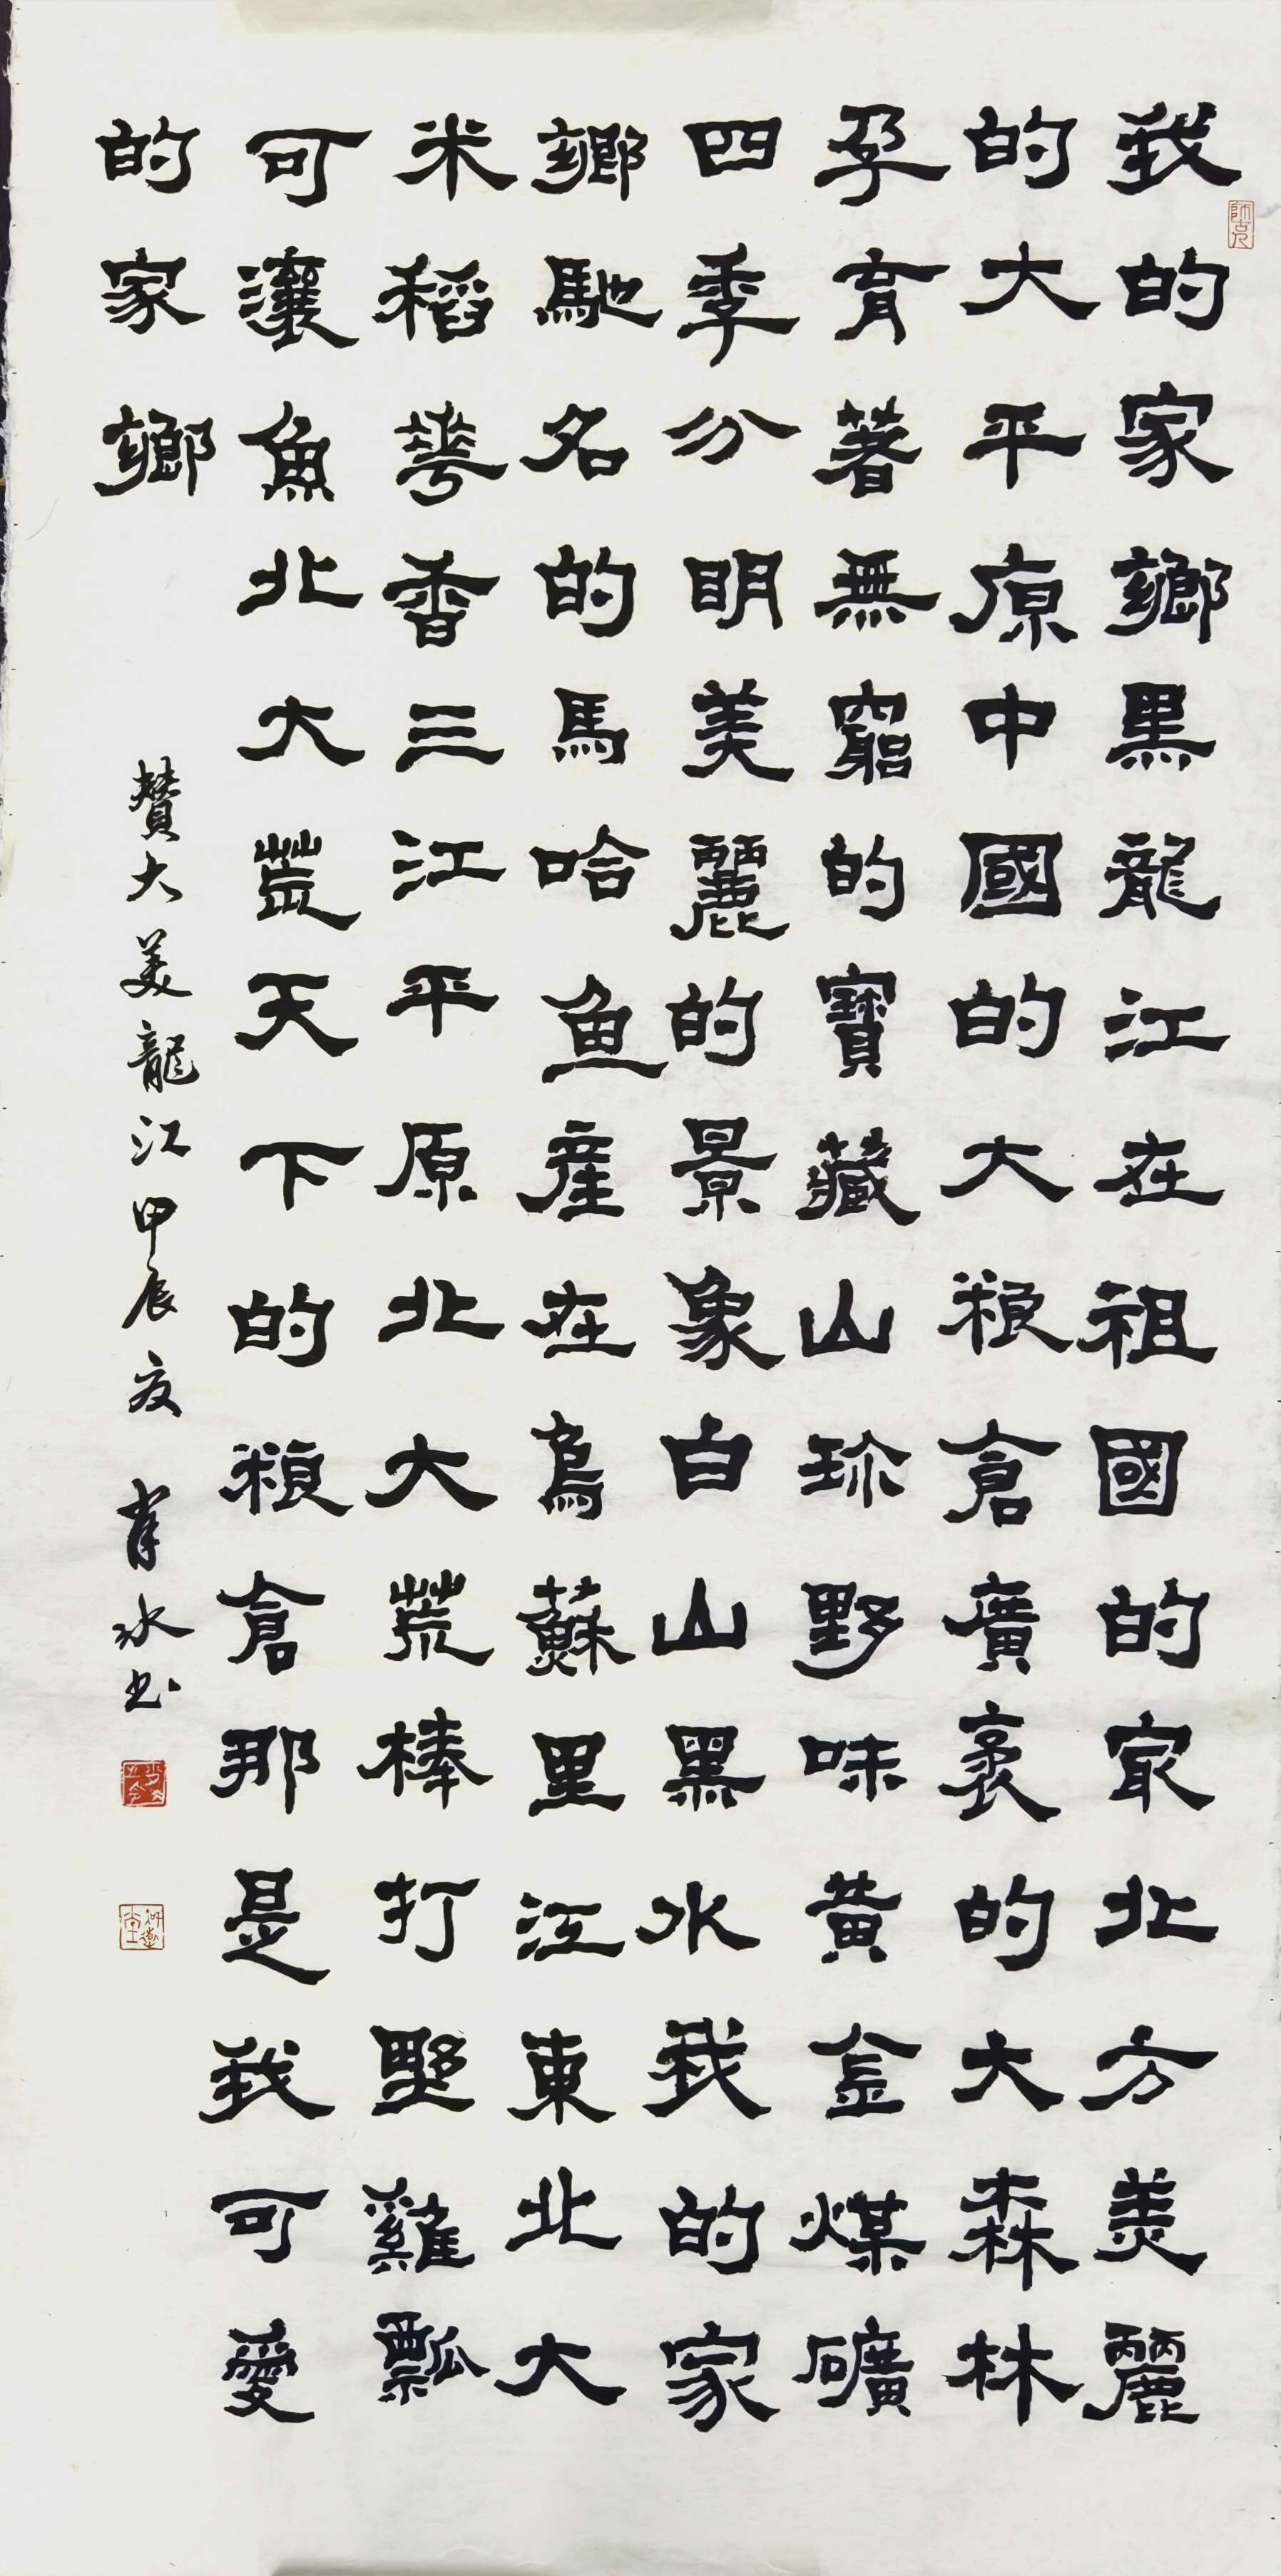 我的家鄉黑龍江在祖國的㝡北方美麗
的大平原中國的大糧倉廣袤的大森林
孕育著無窮的寶藏山珎野味黄金煤礦
四季分明美麗的景象白山黑水我的家
鄉馳名的馬哈魚産在烏蘇里江東北大
米稻華香三江平原北大荒棒打野雞瓢
可瀼魚北大荒天下的糧倉那是我可愛
的家鄉
贊大美龍江甲辰夜肖冰书